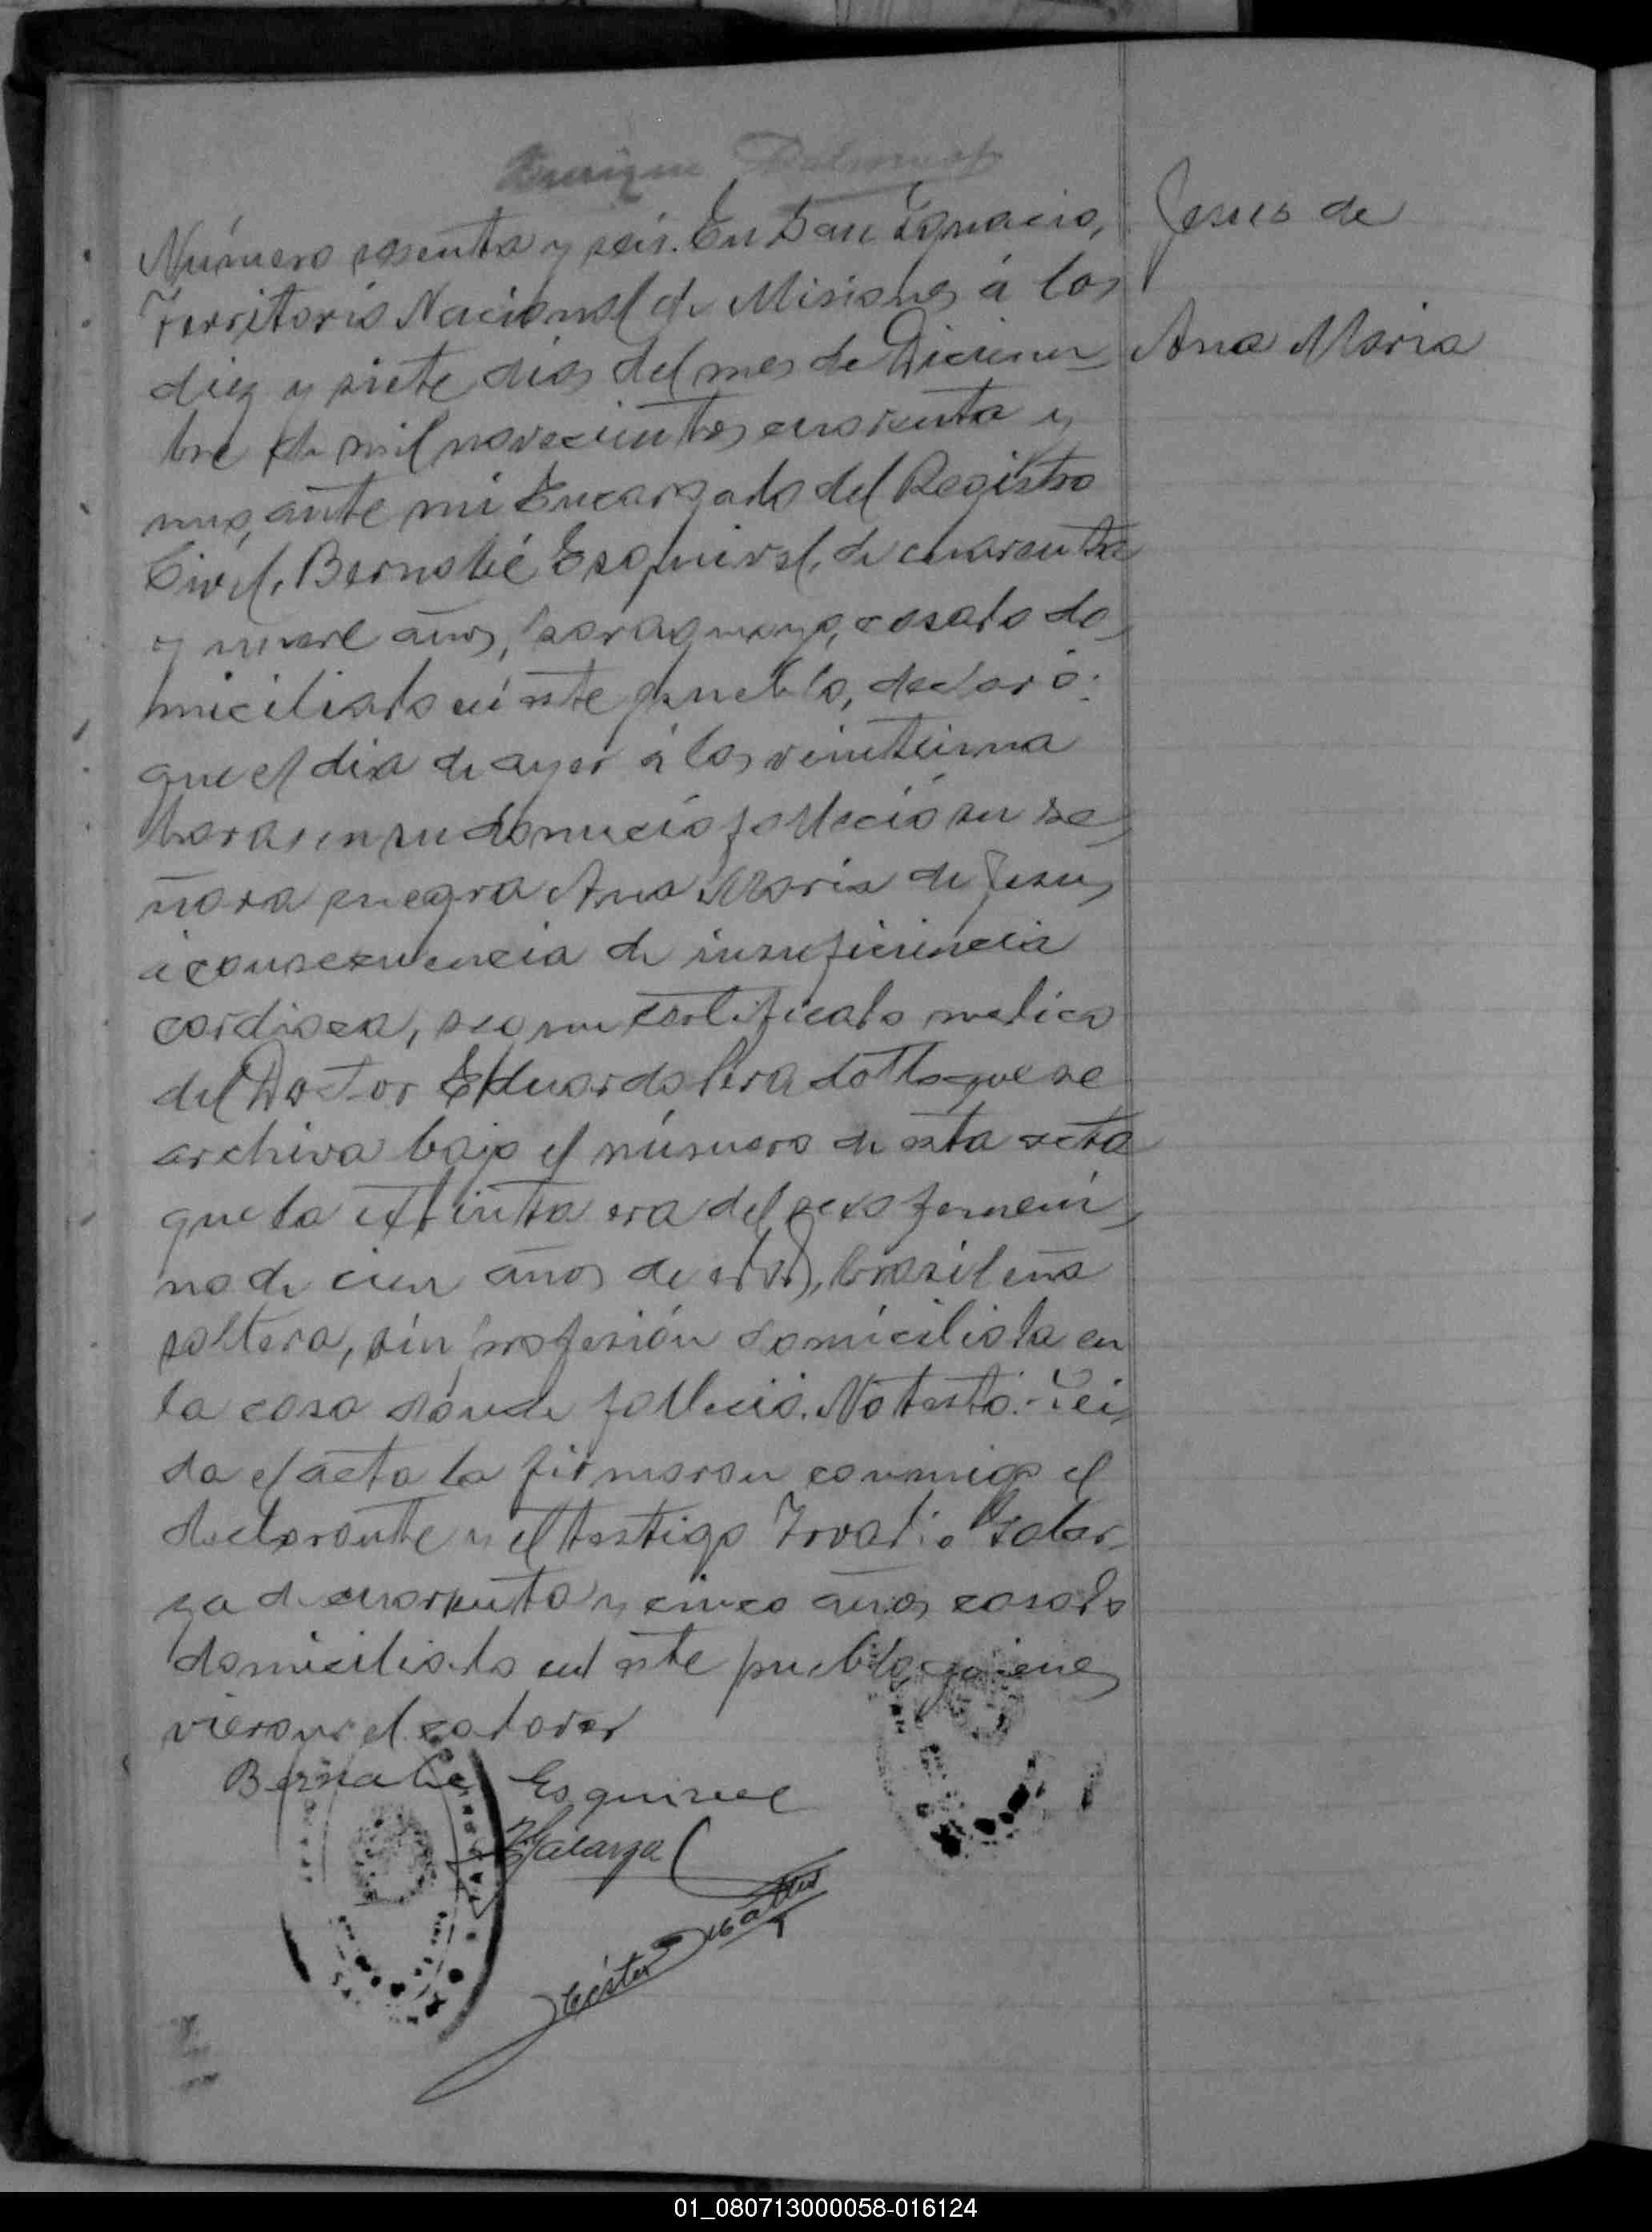 Enrique
Número sesenta y seis. En San Ignacio,
Territorio Nacional de Misiones á los
diez y siete dias del mes de Diciem-
bre de mil novecientos cuarenta y
uno, ante mi Encargado del Registro
Civil, Bernabé Esquivel, de cuarenta
y nueve años, paraguayo, casado do-
miciliado en este pueblo, declaró:
que el dia de ayer á las veintiuna
horas en su domicio falleció su se-
ñora suegra Ana Maria de Jesus
á consecuencia de insuficiencia
cardiaca, segun certificado medico
del Doctor Eduardo que se
archiva bajo el número de esta acta
que la extinta era del sexo femeni-
no de cien años de edad, brasileña
soltera, sin profesión domiciliada en
la casa dónde falleció. No testó.- Lei-
da el acta la firmaron conmigo el
declarante y el testigo Galar-
za de cuarenta y cinco años casado
domiciliado en este pueblo, quienes
vieron el cadaver
Bernabe Esquivel
Galarza
Héctor
Jesus de
Ana Maria
01_080713000058-016124